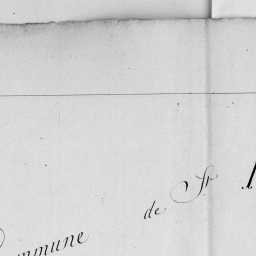 ommune de St